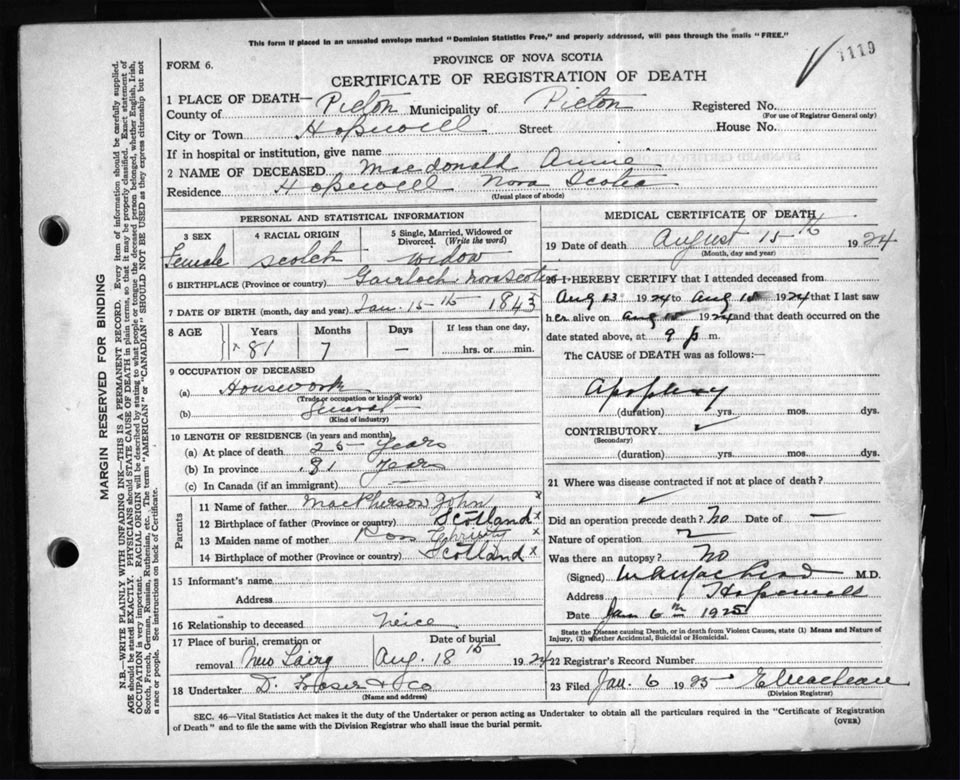 This form if placed in an unsealed envelope marked "Dominion Statistics Free," and properly addressed, will pass through the mails "FREE."
1119
FORM 6.
PROVINCE OF NOVA SCOTIA
CERTIFICATE OF REGISTRATION OF DEATH
1 PLACE OF DEATH—
County of Pictou Municipality of Pictou Registered No.
(For use of Registrar General only)
City or Town Hopewell Street House No.
If in hospital or institution, give name
2 NAME OF DECEASED Macdonald Annie
Residence Hopewell Nova Scotia
(Usual place of abode)
PERSONAL AND STATISTICAL INFORMATION
3 SEX Female
4 RACIAL ORIGIN Scotch
5 Single, Married, Widowed or Divorced. (Write the word) Widow
6 BIRTHPLACE (Province or country) Gairloch Nova Scotia
7 DATE OF BIRTH (month, day and year) Jan. 15th 1843
8 AGE Years Months Days If less than one day,
81 7 — hrs. or min.
9 OCCUPATION OF DECEASED
(a) Housework
(Trade or occupation or kind of work)
(b) General
(Kind of industry)
10 LENGTH OF RESIDENCE (in years and months)
(a) At place of death 25 years
(b) In province 81 years
(c) In Canada (if an immigrant) —
Parents
11 Name of father MacPherson John x
12 Birthplace of father (Province or country) Scotland x
13 Maiden name of mother Ross Christy x
14 Birthplace of mother (Province or country) Scotland x
15 Informant's name
Address
16 Relationship to deceased Neice
17 Place of burial, cremation or removal New Lairg
Date of burial Aug. 18th 1924
18 Undertaker D. Fraser & Co
(Name and address)
MEDICAL CERTIFICATE OF DEATH
19 Date of death August 15th 1924
(Month, day and year)
20 I HEREBY CERTIFY that I attended deceased from
Aug 13 1924 to Aug 15 1924 that I last saw
her alive on Aug 15 1924 and that death occurred on the
date stated above, at 9 p m.
The CAUSE OF DEATH was as follows:
Apoplexy
(duration) yrs. mos. dys.
CONTRIBUTORY
(Secondary)
(duration) yrs. mos. dys.
21 Where was disease contracted if not at place of death?
Did an operation precede death? No Date of —
Nature of operation
Was there an autopsy? No
(Signed) M.D.
Address Hopewell
Date Jan 6th 1925
State the Disease causing Death, or in death from Violent Causes, state (1) Means and Nature of
Injury, (2) whether Accidental, Suicidal or Homicidal.
22 Registrar's Record Number
23 Filed Jan. 6 1925 E Maclean
(Division Registrar)
SEC. 46—Vital Statistics Act makes it the duty of the Undertaker or person acting as Undertaker to obtain all the particulars required in the "Certificate of Registration
of Death" and to file the same with the Division Registrar who shall issue the burial permit.
(OVER)
MARGIN RESERVED FOR BINDING
N.B.—WRITE PLAINLY WITH UNFADING INK—THIS IS A PERMANENT RECORD. Every item of information should be carefully supplied.
AGE should be stated EXACTLY. PHYSICIANS should STATE CAUSE OF DEATH in plain terms, so that it may be properly classified. Exact statement of
OCCUPATION is very important. RACIAL ORIGIN will be described by stating to what people or tongue the deceased person belonged, whether English, Irish,
Scotch, French, German, Russian, Ruthenian, etc. The terms "AMERICAN" or "CANADIAN" SHOULD NOT BE USED as they express citizenship but not
a race or people. See instructions on back of Certificate.